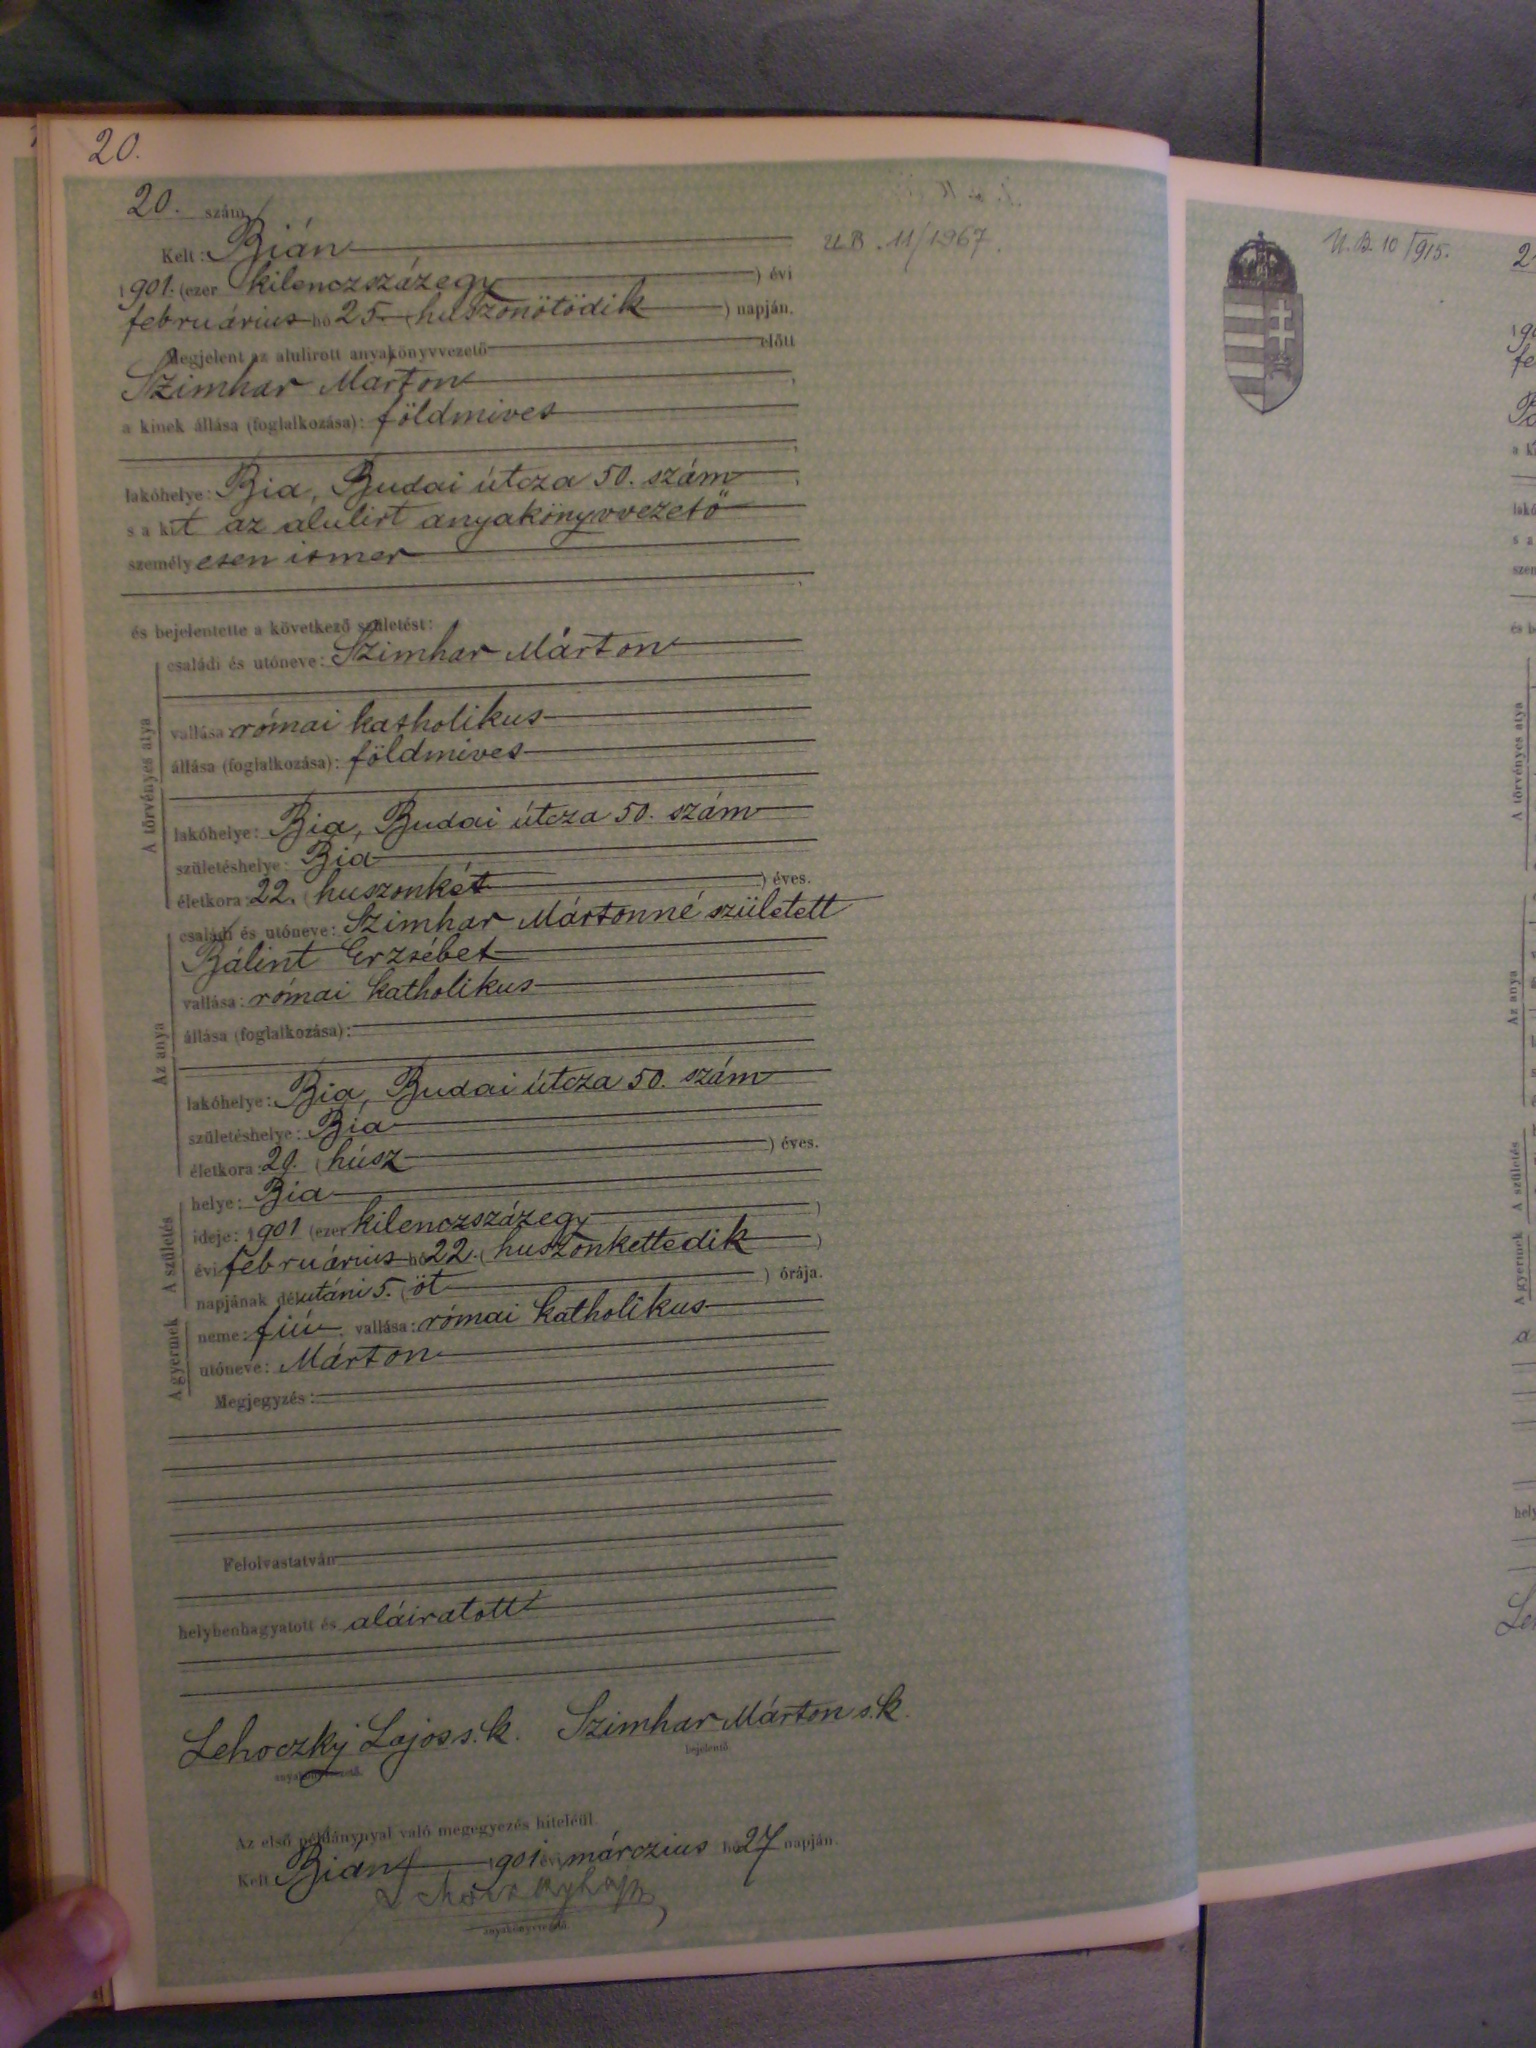 20.
20. szám
U.B. 11/1967.
Kelt: Bián
1901. (ezer kilenczszázegy ) évi
februárius hó 25. (huszonötödik ) napján.
Megjelent az alulirott anyakönyvvezető előtt
Szimhar Márton ,
a kinek állása (foglalkozása): földmives
,
lakóhelye: Bia, Budai útcza 50. szám ,
s a kit az alulirt anyakönyvvezető
személyesen ismer
,
és bejelentette a következő születést:
A törvényes atya
családi és utóneve: Szimhar Márton
vallása: római katholikus
állása (foglalkozása): földmives
lakóhelye: Bia, Budai útcza 50. szám
születéshelye: Bia
életkora: 22. (huszonkét ) éves.
Az anya
családi és utóneve: Szimhar Mártonné született
Bálint Erzsébet
vallása: római katholikus
állása (foglalkozása):
lakóhelye: Bia, Budai útcza 50. szám
születéshelye: Bia
életkora: 20. (húsz ) éves.
A születés
helye: Bia
ideje: 1901 (ezer kilenczszázegy )
évi februárius hó 22. (huszonkettedik )
napjának délutáni 5. (öt ) órája.
A gyermek
neme: fiú, vallása: római katholikus
utóneve: Márton
Megjegyzés:
Felolvastatván
helybenhagyatott és aláiratott
Lehoczky Lajos s.k. Szimhar Márton s.k.
anyakönyvvezető. bejelentő.
Az első példánynyal való megegyezés hiteléül.
Kelt Bián 1901 évi márczius hó 27 napján.
Lehoczky Lajos
anyakönyvvezető.
U.B. 10/915.
A törvényes atya
Az anya
A születés
A gyermek